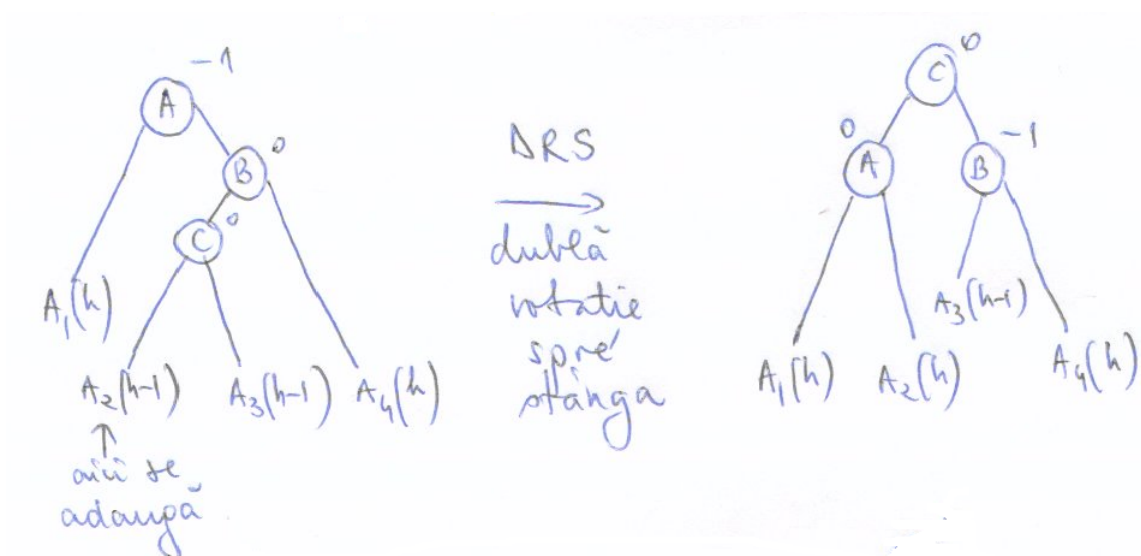 -1
A
0
B
0
C
A1(h)
A2(h-1)
A3(h-1)
A4(h)
aici se
adaugă
DRS
dublă
rotatie
spre
stânga
0
C
0
A
-1
B
A1(h)
A2(h)
A3(h-1)
A4(h)